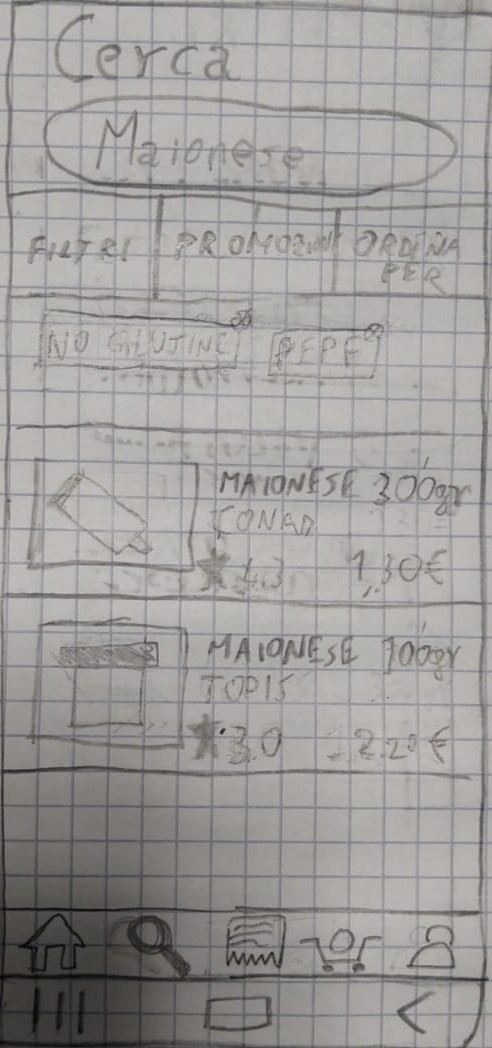 Cerca
Maionese
FILTRI PROMOZIONI ORDINA PER
NO GLUTINE PEPE
MAIONESE 300gr
CONAD
4.3 1,30€
MAIONESE 700gr
TOPIS
3.0 2.20€